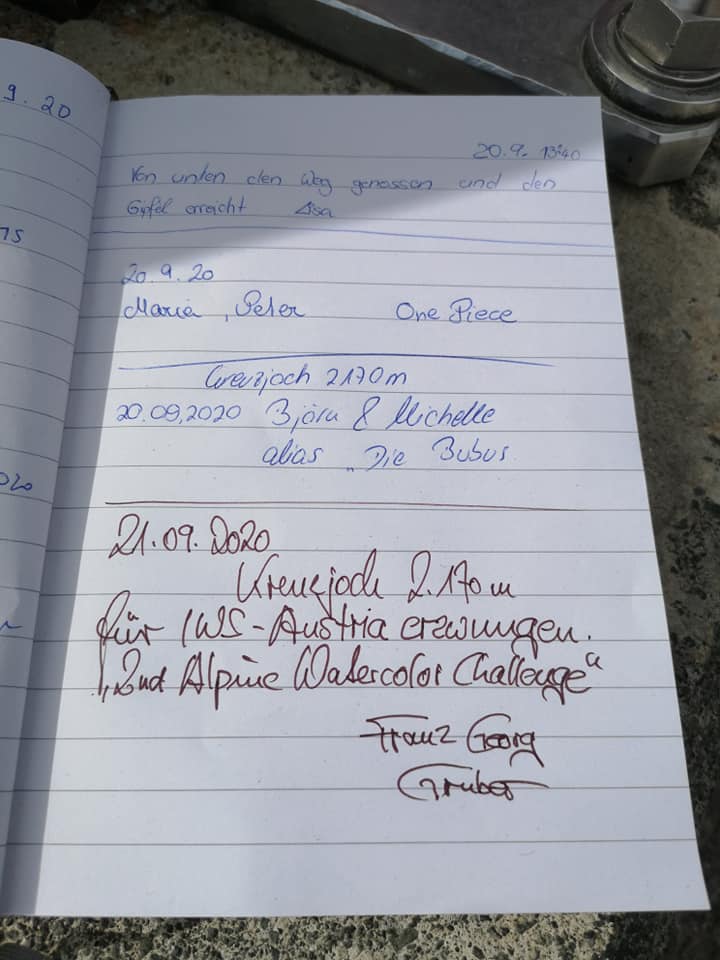 9.20
20.9. 13:40
Von unten den Weg genossen und den
Gipfel erreicht Lisa
20.9.20
Maria, Peter One Piece
Kreuzjoch 2170m
20.09.2020 Björn & Michelle
alias „Die Bubus
21.09.2020
Kreuzjoch 2.170 m
für IWS-Austria erzwungen.
„2nd Alpine Watercolor Challenge“
Franz Georg
Gruber